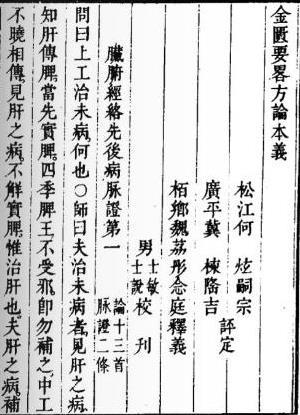 金匱要畧方論本義
松江何　炫嗣宗
廣平冀　棟隆吉　評定
栢鄉魏荔彤念庭釋義
男士敏士說校刊
臟腑經絡先後病脉證第一　論十三首脉證二條
問曰上工治未病何也○師曰夫治未病者見肝之病
知肝傳脾當先實脾四季脾王不受邪卽勿補之中工
不曉相傳見肝之病不解實脾惟治肝也夫肝之病補